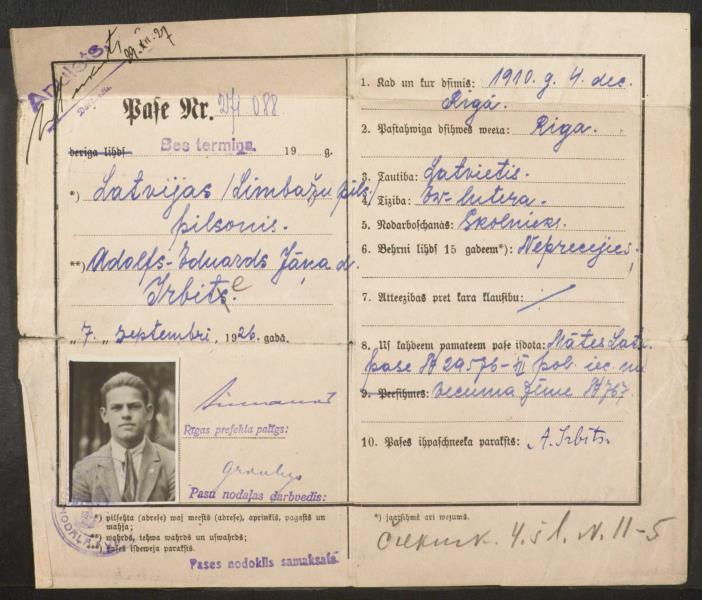 Anulēts
29.XII.27
Pase Nr. 088
deriga lihdz Bes termiņa. 19 g.
*) Latvijas / Limbažu pils /
pilsonis.
**) Adolfs-Eduards Jāņa d.
Irbitse
"7." septembri, 1926. gadā.
Rīgas prefekta palīgs:
Pasu nodaļas darbvedis:
*) pilsehta (adrese) waj meests (adrese), aprinkis, pagasts un
mahja;
**) wahrds, tehwa wahrds un uswahrds;
***) pases isdeweja paraksts.
Pases nodoklis samaksāts.
1. Kad un kur dsimis: 1910. g. 4. dec.
Rīgā.
2. Pastahwiga dsihwes weeta: Riga.
3. Tautiba: Latvietis.
4. Tiziba: Ev. lutera.
5. Nodarboschanās: Skolnieks.
6. Behrni lihds 15 gadeem*): Neprecejies.
7. Atteezibas pret kara klausibu: /
8. Us kahdeem pamateem pase isdota: Mātes Latv.
pase № 29576-II pol. iec. un
9. Peesihmes: vecuma zīme № 767.
10. Pases ihpaschneeka paraksts: A. Irbits.
*) jaatsihmē ari wezums.
4. šķ. N. 11-5